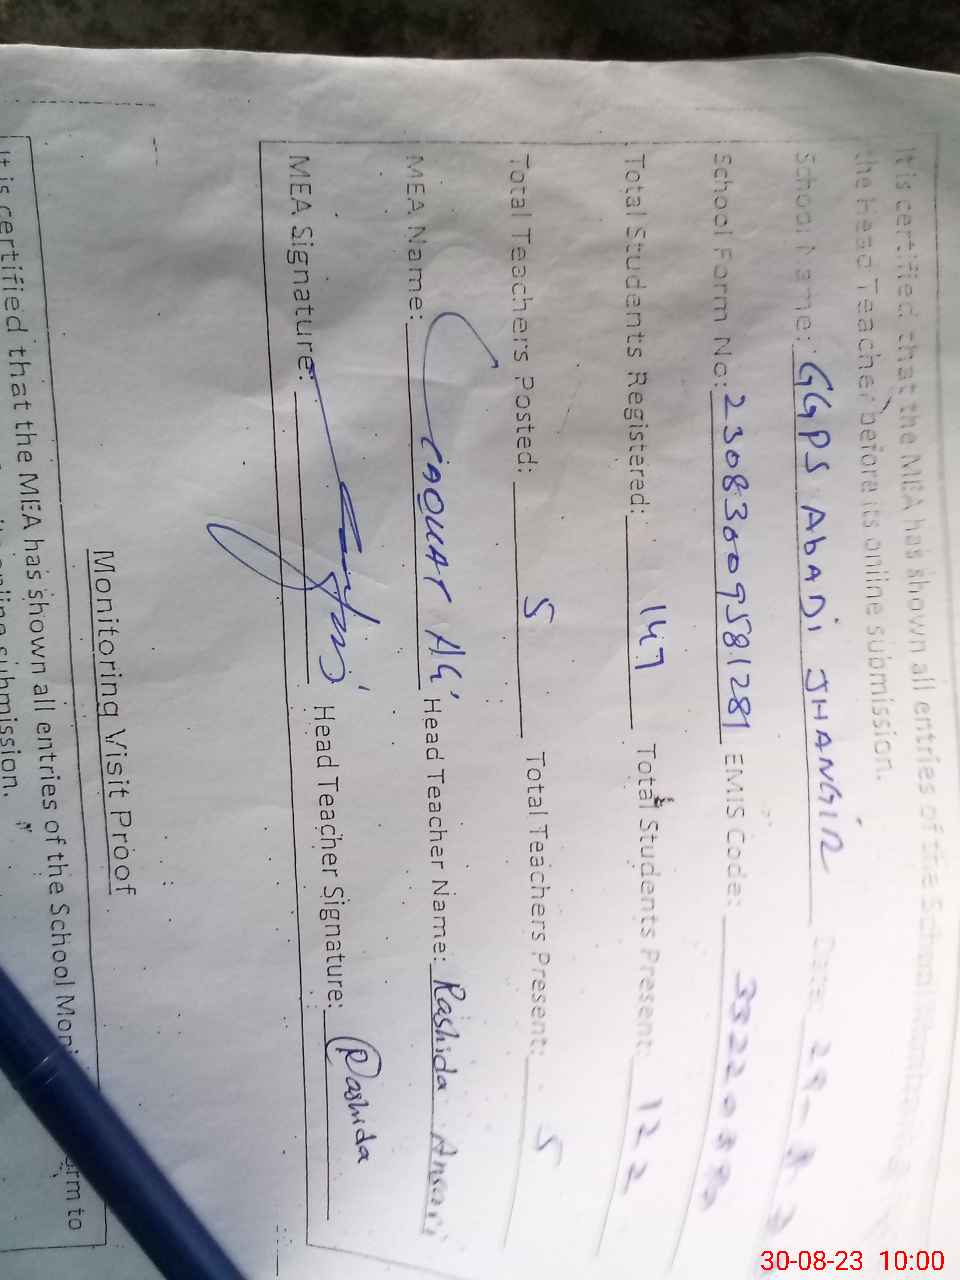 It is certified that the MEA has shown all entries of the School
the Head Teacher before its online submission.
School Name: GGPS AbADi JHANGIR Date: 29-
School Form No: 23083009581281 EMIS Code:
Total Students Registered: 147 Total Students Present: 122
Total Teachers Posted: 5 Total Teachers Present: 5
MEA Name: Head Teacher Name: Rashida Ansari
MEA Signature: Head Teacher Signature: Rashida
Monitoring Visit Proof
It is certified that the MEA has shown all entries of the School
submission.
30-08-23 10:00